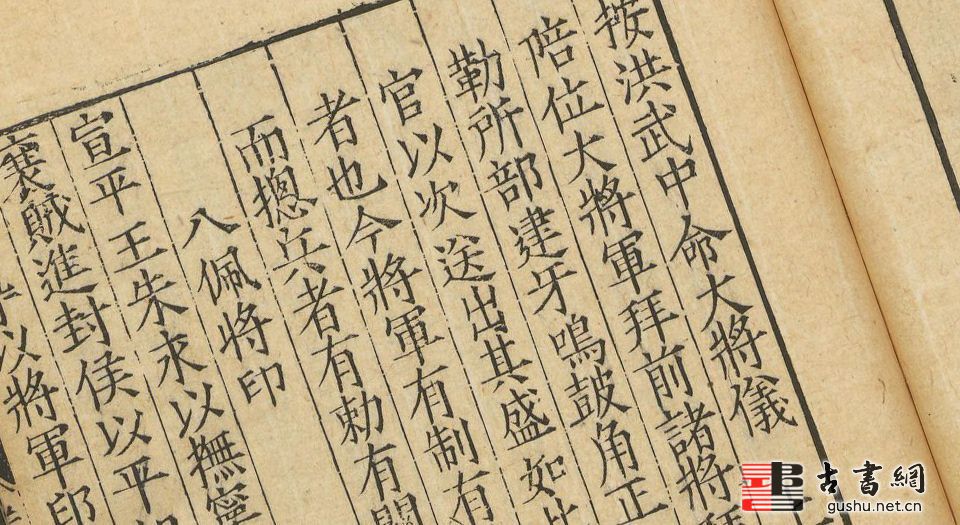 按洪武中命大將儀
陪位大將軍拜前諸將
勒所部建牙鳴鼓角正
官以次送出其盛如
者也今將軍有制有
而摠兵者有勅有關
八佩將印
宣平王朱永以撫寧
襄賊進封侯以平
以將軍印
古書網
gushu.net.cn